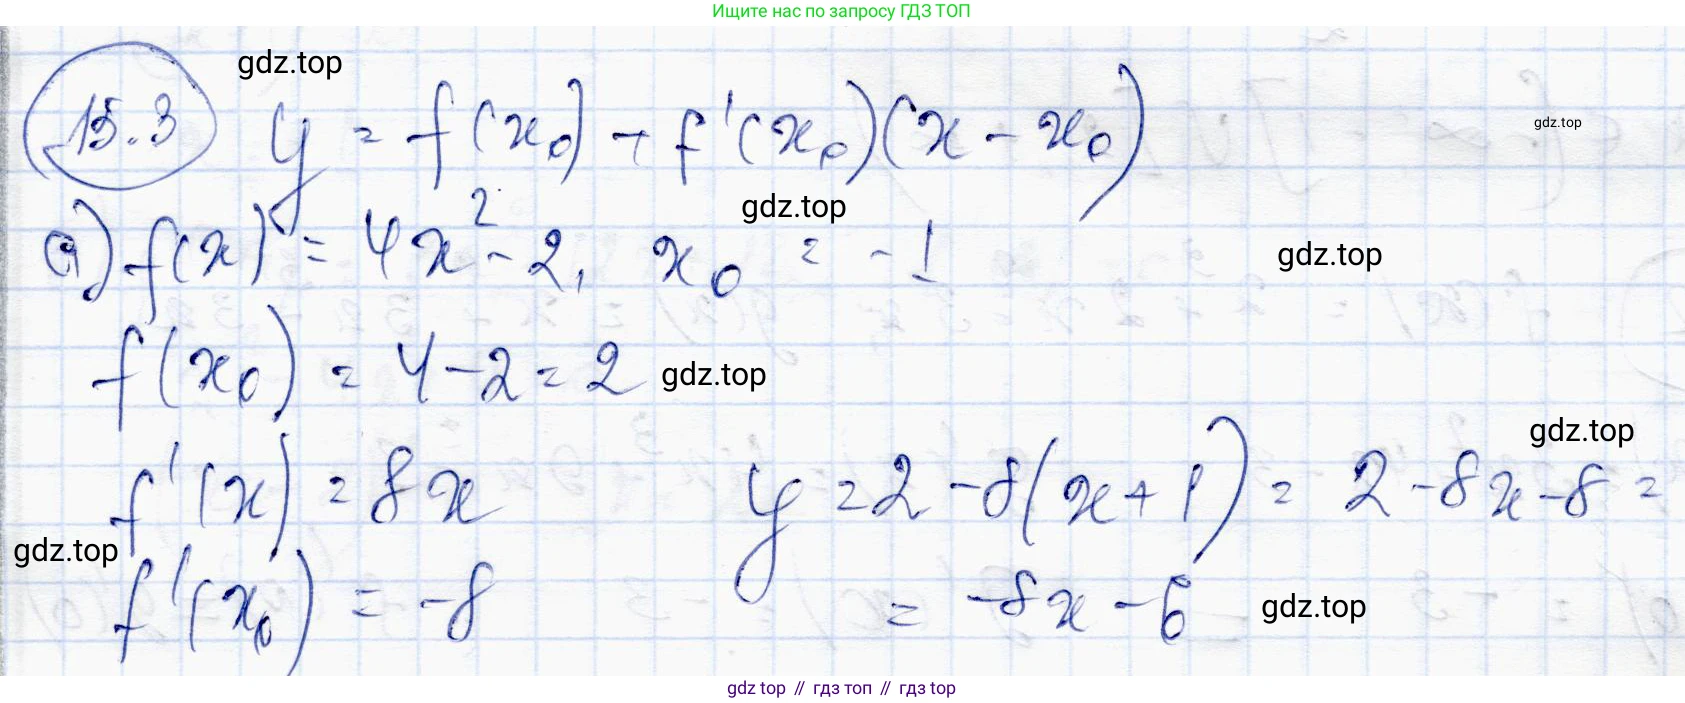 Ищите нас по запросу ГДЗ ТОП
gdz.top
15.3 y = f(x₀) + f'(x₀)(x - x₀)
gdz.top
gdz.top
а) f(x) = 4x² - 2, x₀ = -1
gdz.top
f(x₀) = 4 - 2 = 2
gdz.top
gdz.top
f'(x) = 8x
y = 2 - 8(x + 1) = 2 - 8x - 8 =
gdz.top
f'(x₀) = -8
= -8x - 6
gdz.top
gdz top // гдз топ // гдз top